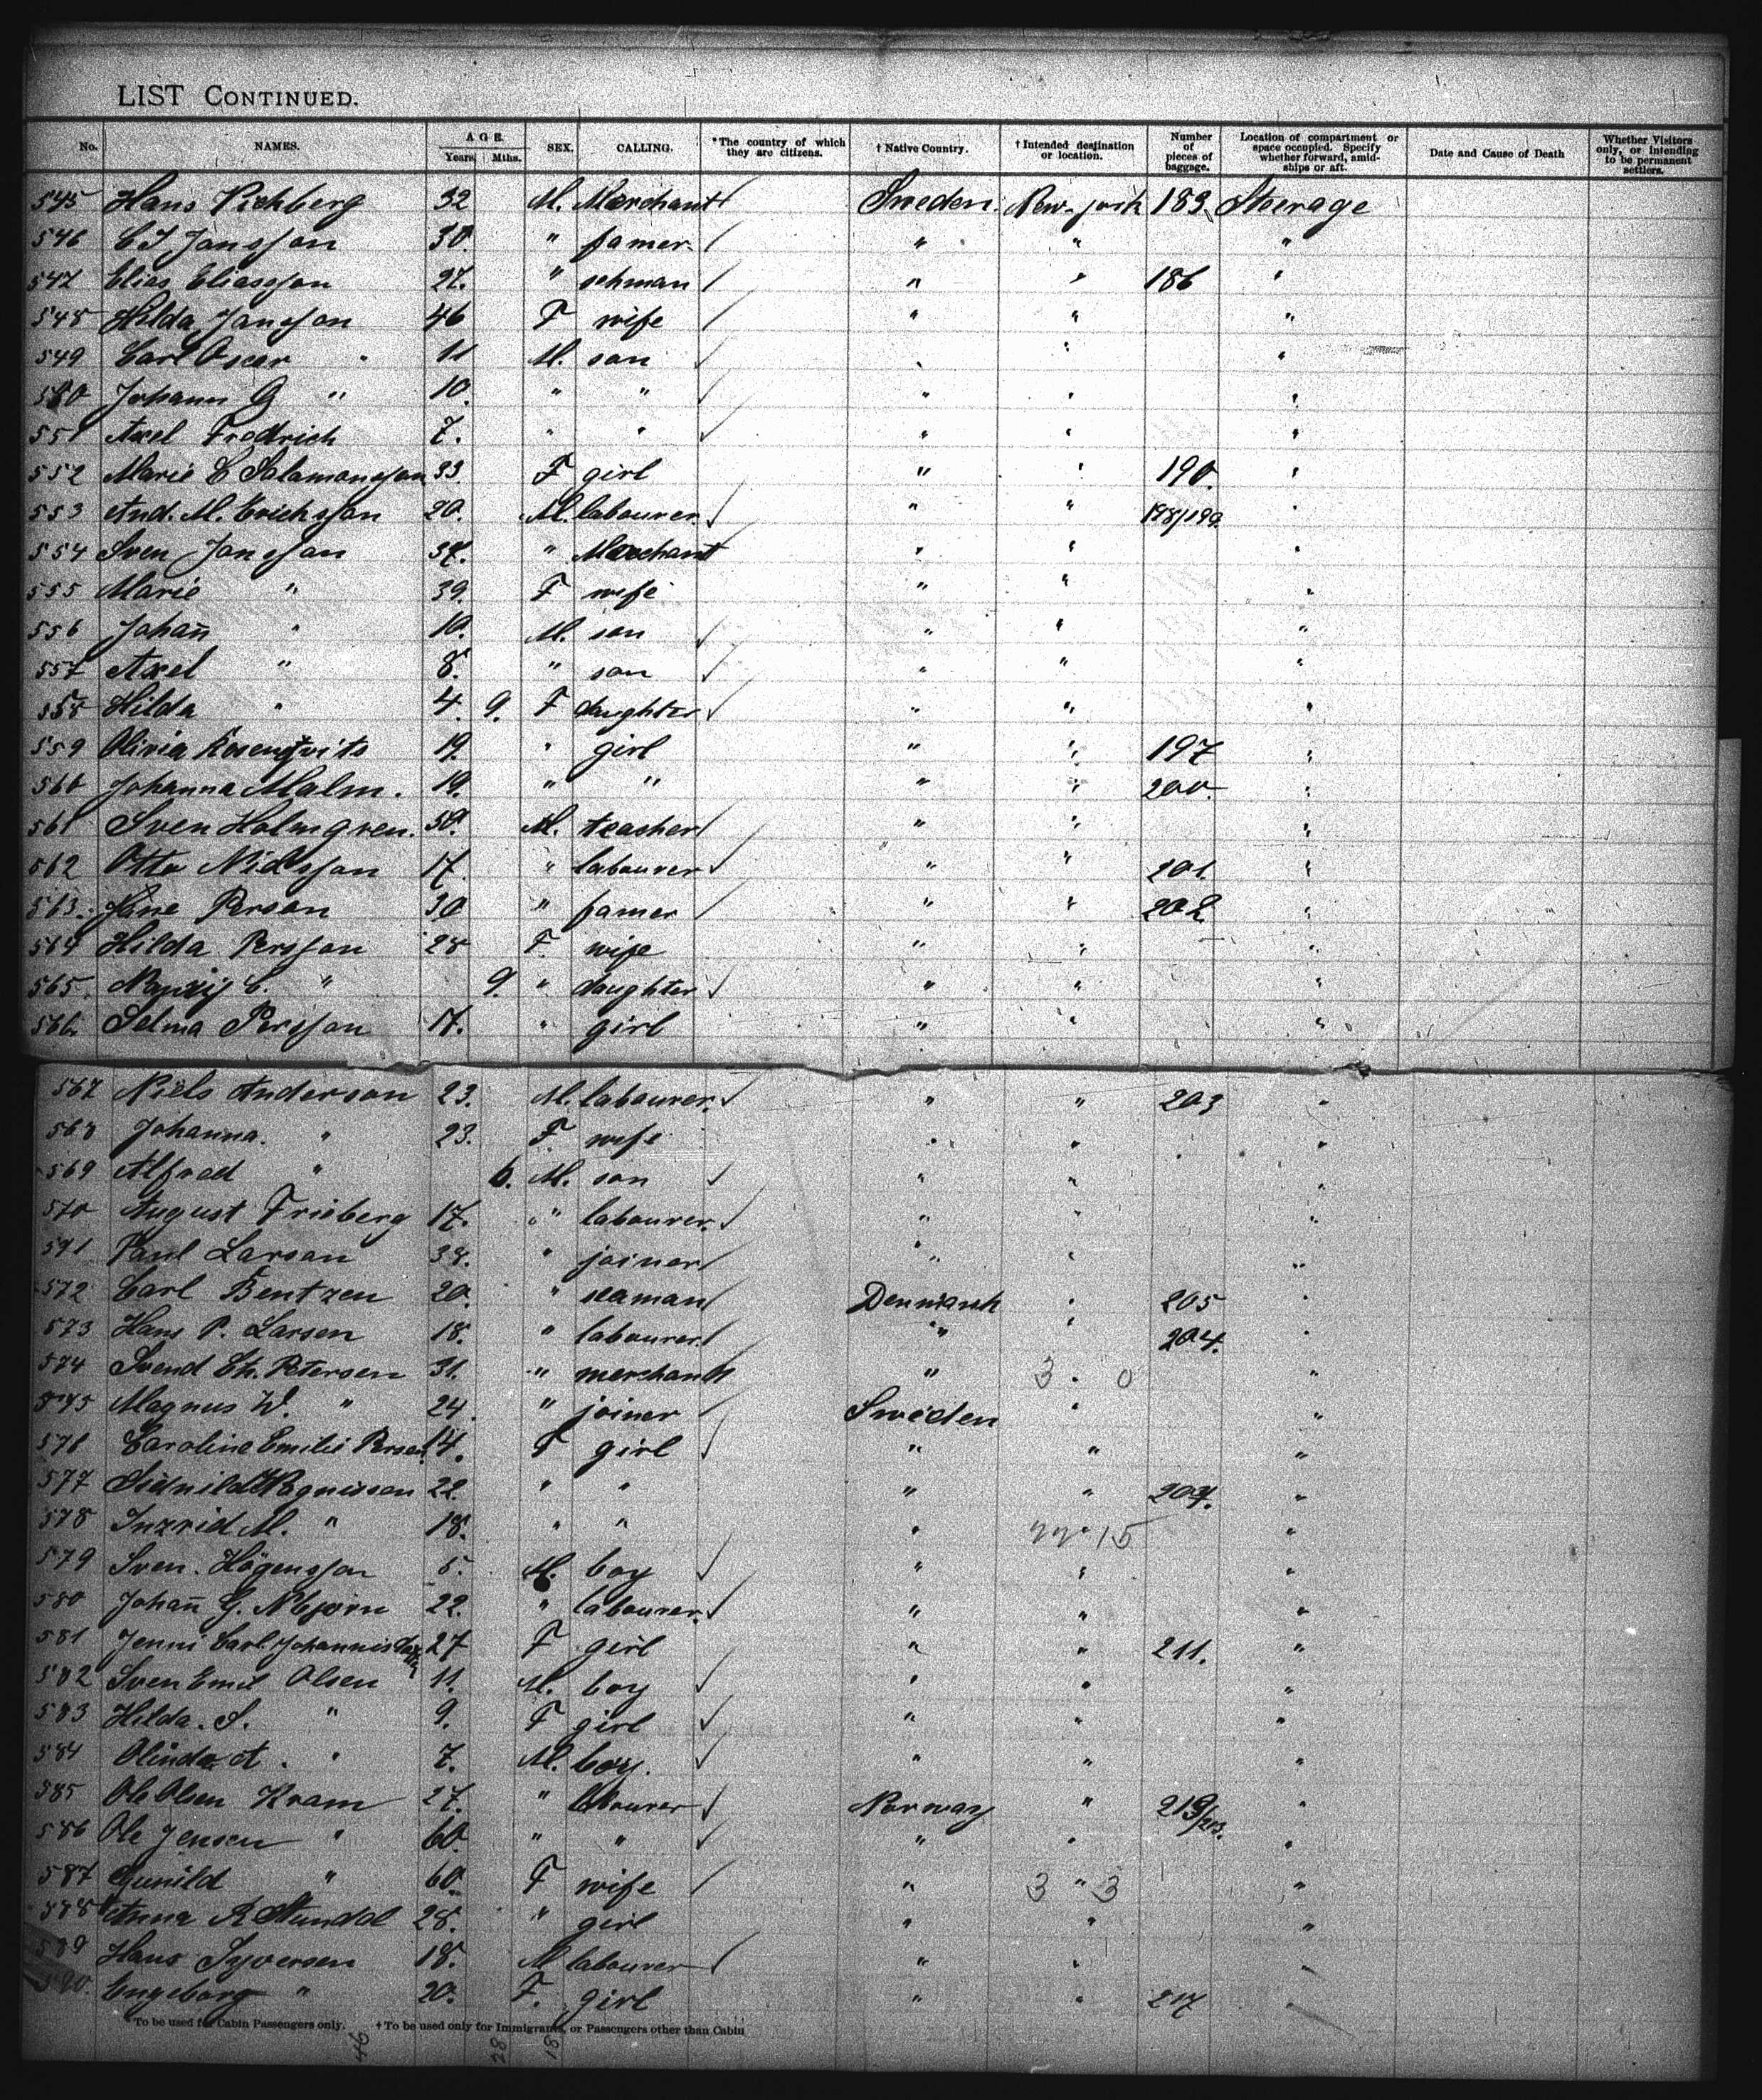 LIST CONTINUED.
No. NAMES. AGE. Years. Mths. SEX. CALLING. *The country of which they are citizens. † Native Country. † Intended destination or location. Number of pieces of baggage. Location of compartment or space occupied. Specify whether forward, amidships or aft. Date and Cause of Death Whether Visitors only, or intending to be permanent settlers.
545 Hans Richberg 32 M. Merchant Sweden New-york 183 Steerage
546 C J Jansson 30. " famer " " "
547 Elias Eliasson 27. " sehman " " 186 "
548 Hilda Jansson 46 F wife " " "
549 Carl Oscar " 11 M. son " " "
550 Johann G " 10. " " " " "
551 Axel Fredrich 7. " " " " "
552 Marie C Salamonsson 33 F girl " " 190. "
553 And. M. Erichsson 20. M. labourer " " 198/199. "
554 Sven Jansson 37. " Merchant " " "
555 Marie " 39. F wife " " "
556 Johan̄ " 10. M. son " " "
557 Axel " 8. " son " " "
558 Hilda " 4. 9. F daughter " " "
559 Olivia Rosenqvits 19. " girl " " 197 "
560 Johanna Malm. 19. " " " " 200. "
561 Sven Holmgren. 50. M. teasher " " "
562 Otto Nielsson 17. " labourer " " 201. "
563. Persson 30 " famer " " 202 "
564 Hilda Persson 28 F. wife " " "
565. C. " 9. " daughter " " "
566. Selma Persson 17. " girl " " "
567 Niels Anderson 23. M. labourer. " " 203 "
568 Johanna. " 23. F wife " " "
569 Alfred " 6. M. son " " "
570 August Frieberg 17. " labourer. " " "
571 Paul Larsen 38. " joiner " " "
572 Carl Bentzen 20. " seaman Denmark " 205 "
573 Hans P. Larsen 18. " labourer. " " 204. "
574 Svend Ch. Petersen 31. " merchant " 3 . 0 "
575 Magnus W. " 24. " joiner Sweden " "
576 Caroline Emilie Persen 14. F girl " " "
577 22. " " " " 207. "
578 Ingrid M. " 18. " " " 15 "
579 Sven. Högensson 5. M. boy " " "
580 Johan̄ G. Nbjorn 22. " labourer. " " "
581 Jenni Carl Johannis 27 F girl " " 211. "
582 Sven Emil Olsen 11. M. boy " " "
583 Hilda. S. " 9. F girl " " "
584 Olinda A. " 7. M. boy. " " "
585 Ole Olsen Kram 27. " labourer Norway " "
586 Ole Jensen " 60. " " " " "
587 Gunild " 60. F wife " 3 " 3 "
588 Anna R 28. " girl " " "
589 Hans Syversen 18. M labourer " " "
590. Engeborg " 20. F. girl " " 217 "
* To be used for Cabin Passengers only. † To be used only for Immigrants, or Passengers other than Cabin
46 28 18